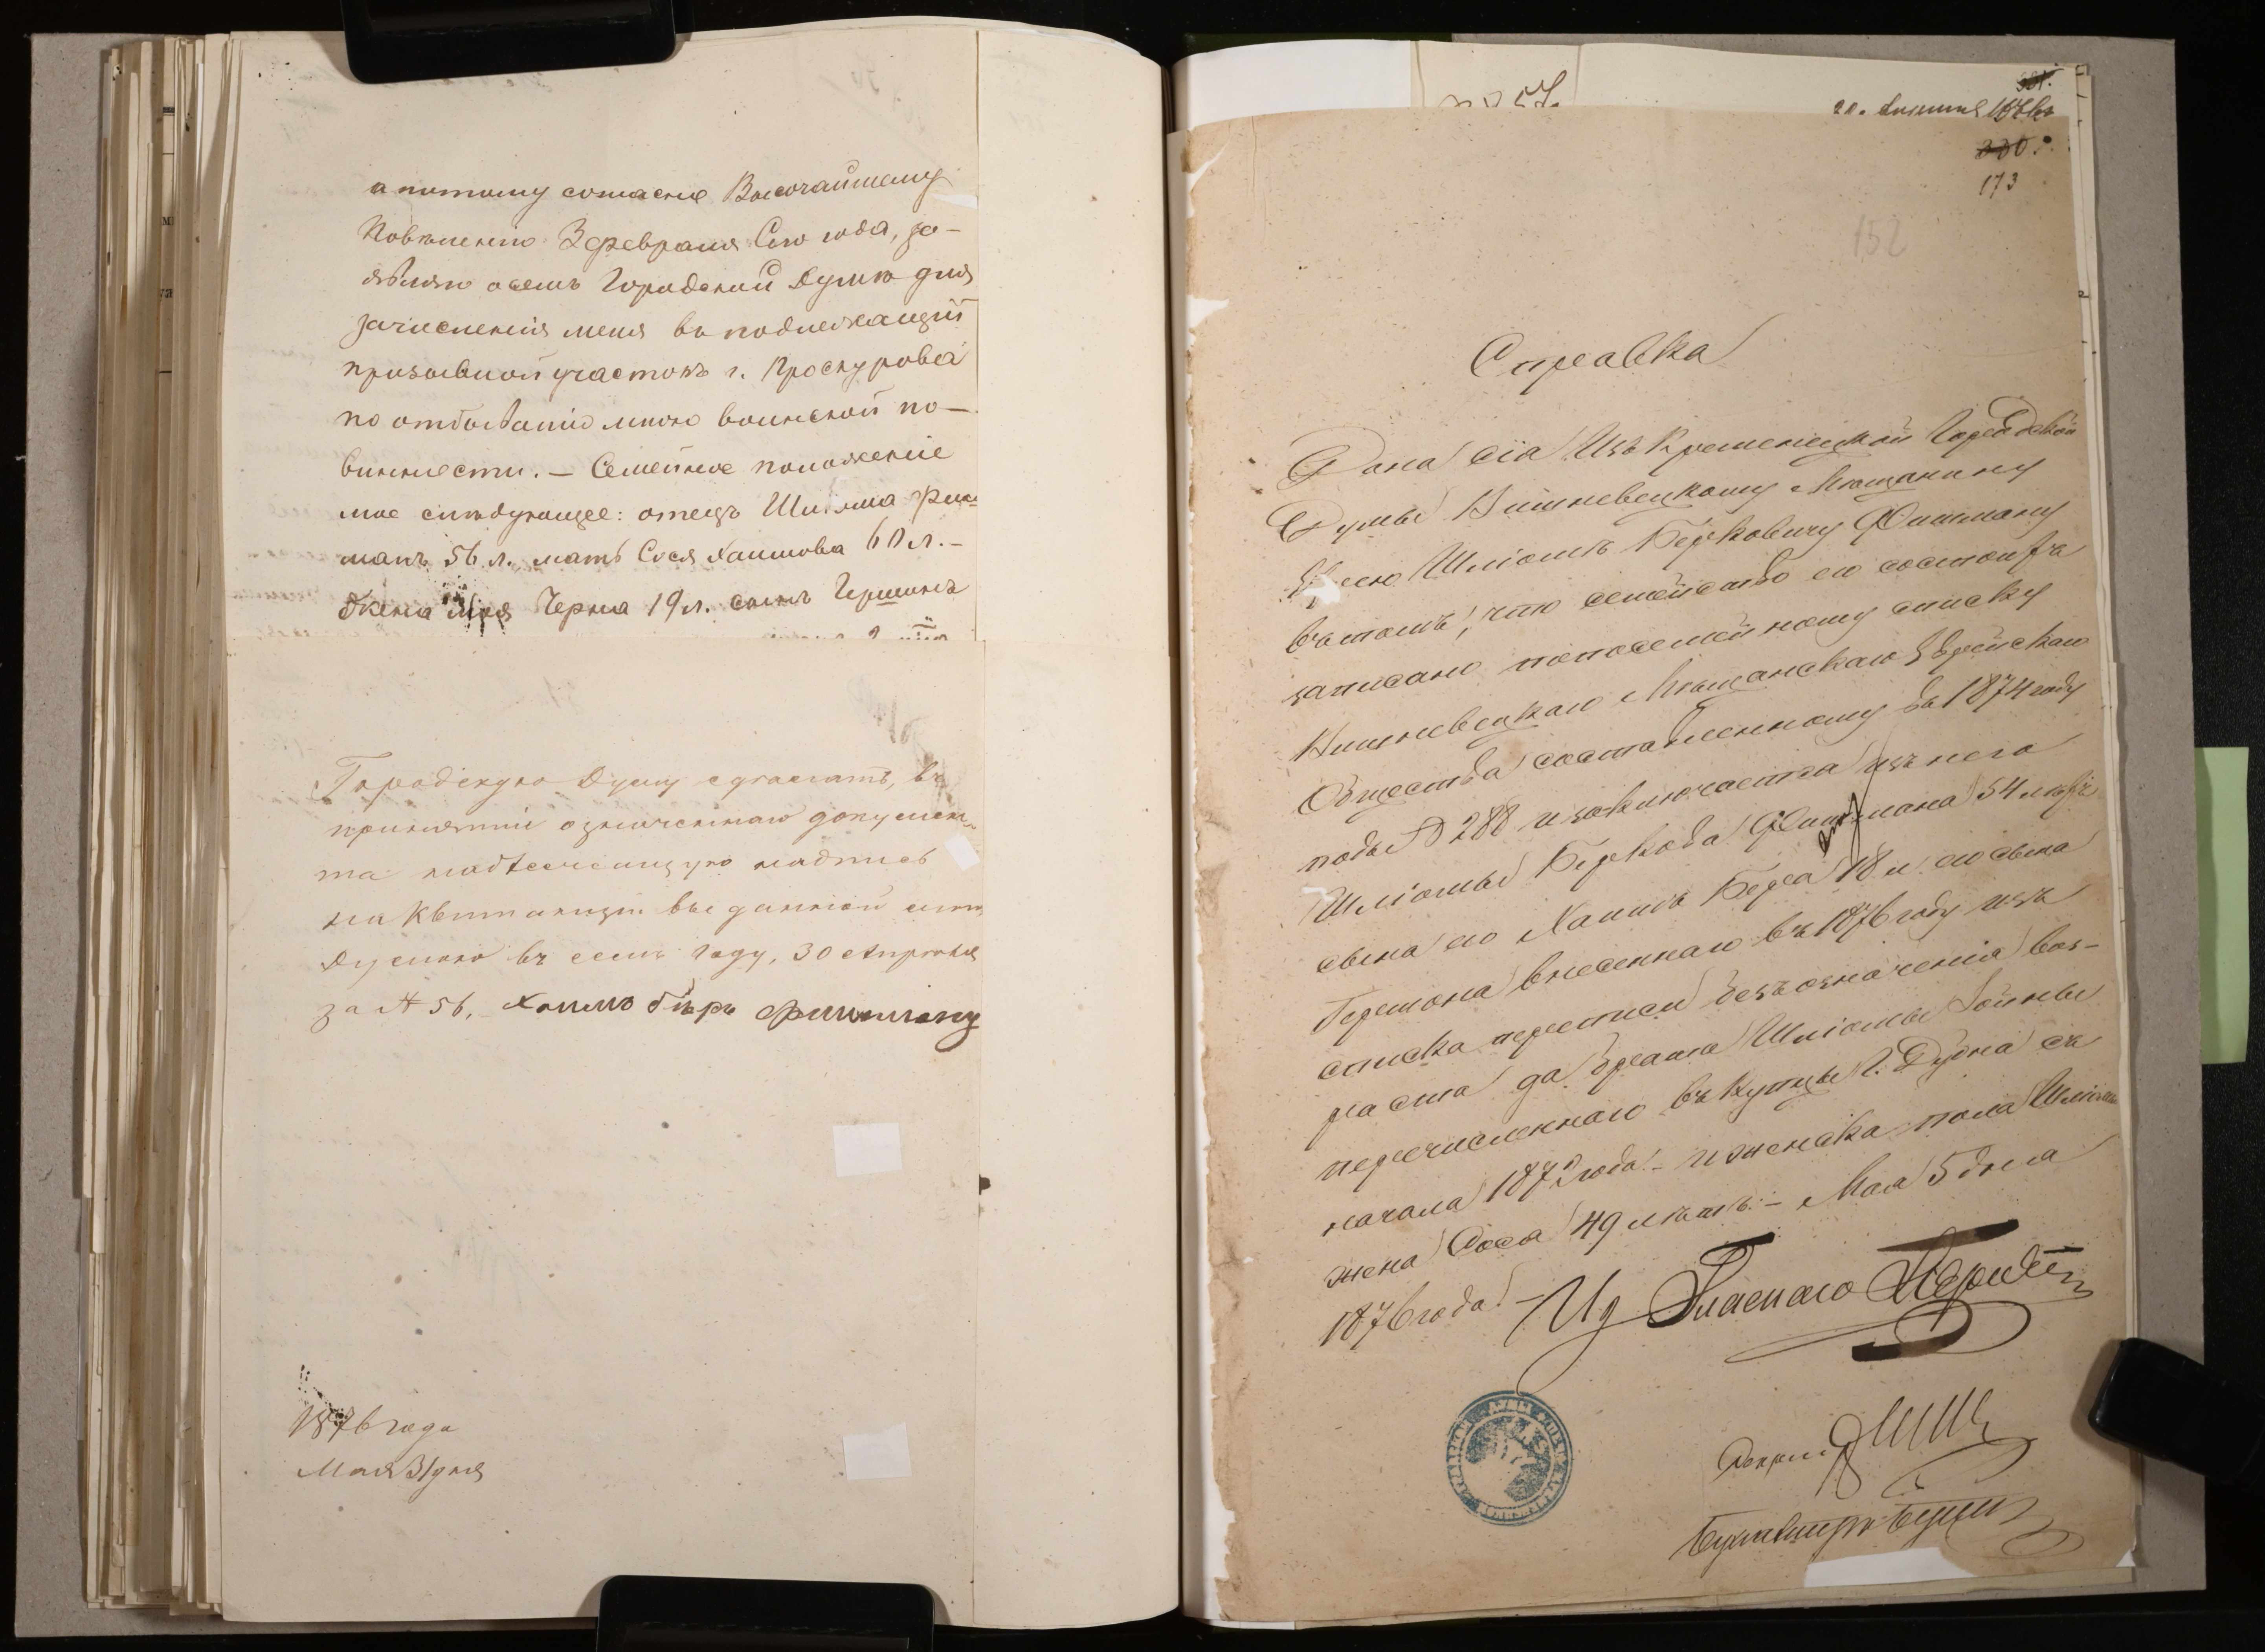 а потому согласно Высочайшему
Повѣленію 3 февраля Сего года, за-
являю о семъ Городской Думѣ для
зачисленія меня въ подлежащій
призывной участокъ г. Проскурова
по отбыванію мною воинской по-
винности. — Семейное положеніе
мое слѣдующее: отецъ Шліома Фиш-
манъ 56 л., мать Сося Хаимова 60 л. –
жена моя Черна 19 л. сынъ Гершинъ
Городскую Думу сдѣлать, въ
принятіи означеннаго докумен-
та надлежащую надпись
на квитанціи выданной
Думою въ семъ году, 30 Апрѣля
за № 56, Хаимъ Беръ Фишману
1876 года
Мая 31 дня
57.
331.
330.
173
152
Справка
Дана сія Изъ Кременецкой Городской
Думы Вишневецкому Мѣщанину
Еврею Шліомѣ Берковичу Фишману
въ томъ, что семейство его состоитъ
записано по посемейному списку
Вишневецкаго Мѣщанскаго Еврейскаго
Общества составленному въ 1874 году
подъ № 288 и заключается изъ него
Шліомы Беркова Фишмана 54 лѣтъ
сына его Хаимъ Бера 18 л. его сына
Гершона внесеннаго въ 1876 году изъ
списка переписи безъ означенія воз-
раста да брата Шліомы Войны
перечисленнаго въ купцы г. Дубна съ
начала 1872 года. – и женска пола Шліомы
жена Сося 49 лѣтъ. – Мая 5 дня
1876 года. –
Ид Гласнаго
Секрет
Бухгалтеръ